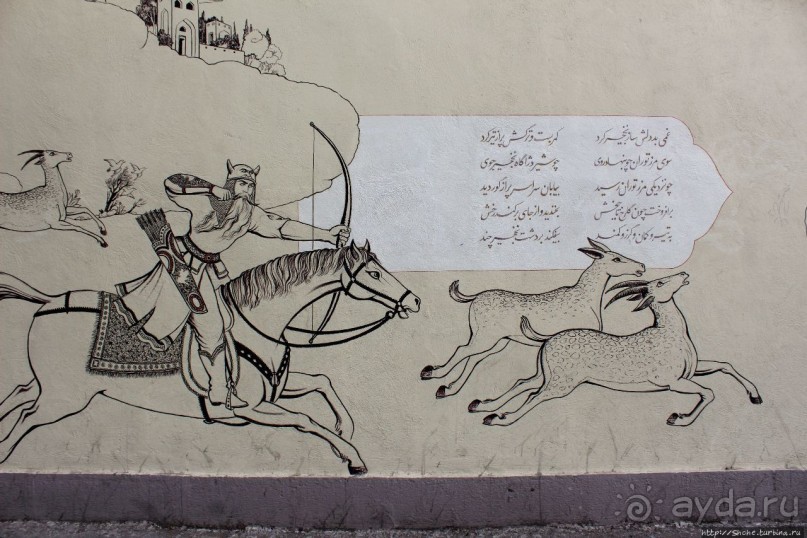 غمی بد دلش ساز نخچیر کرد کمر بست و ترکش پر از تیر کرد
سوی مرز توران چو بنهاد روی چو شیر دژآگاه نخچیر جوی
چو نزدیکی مرز توران رسید بیابان سراسر پر از گور دید
برافروخت چون گل رخ تاج بخش بخندید و از جای برکند رخش
به تیر و کمان و گرز و کمند بیفکند بر دشت نخچیر چند
ayda.ru